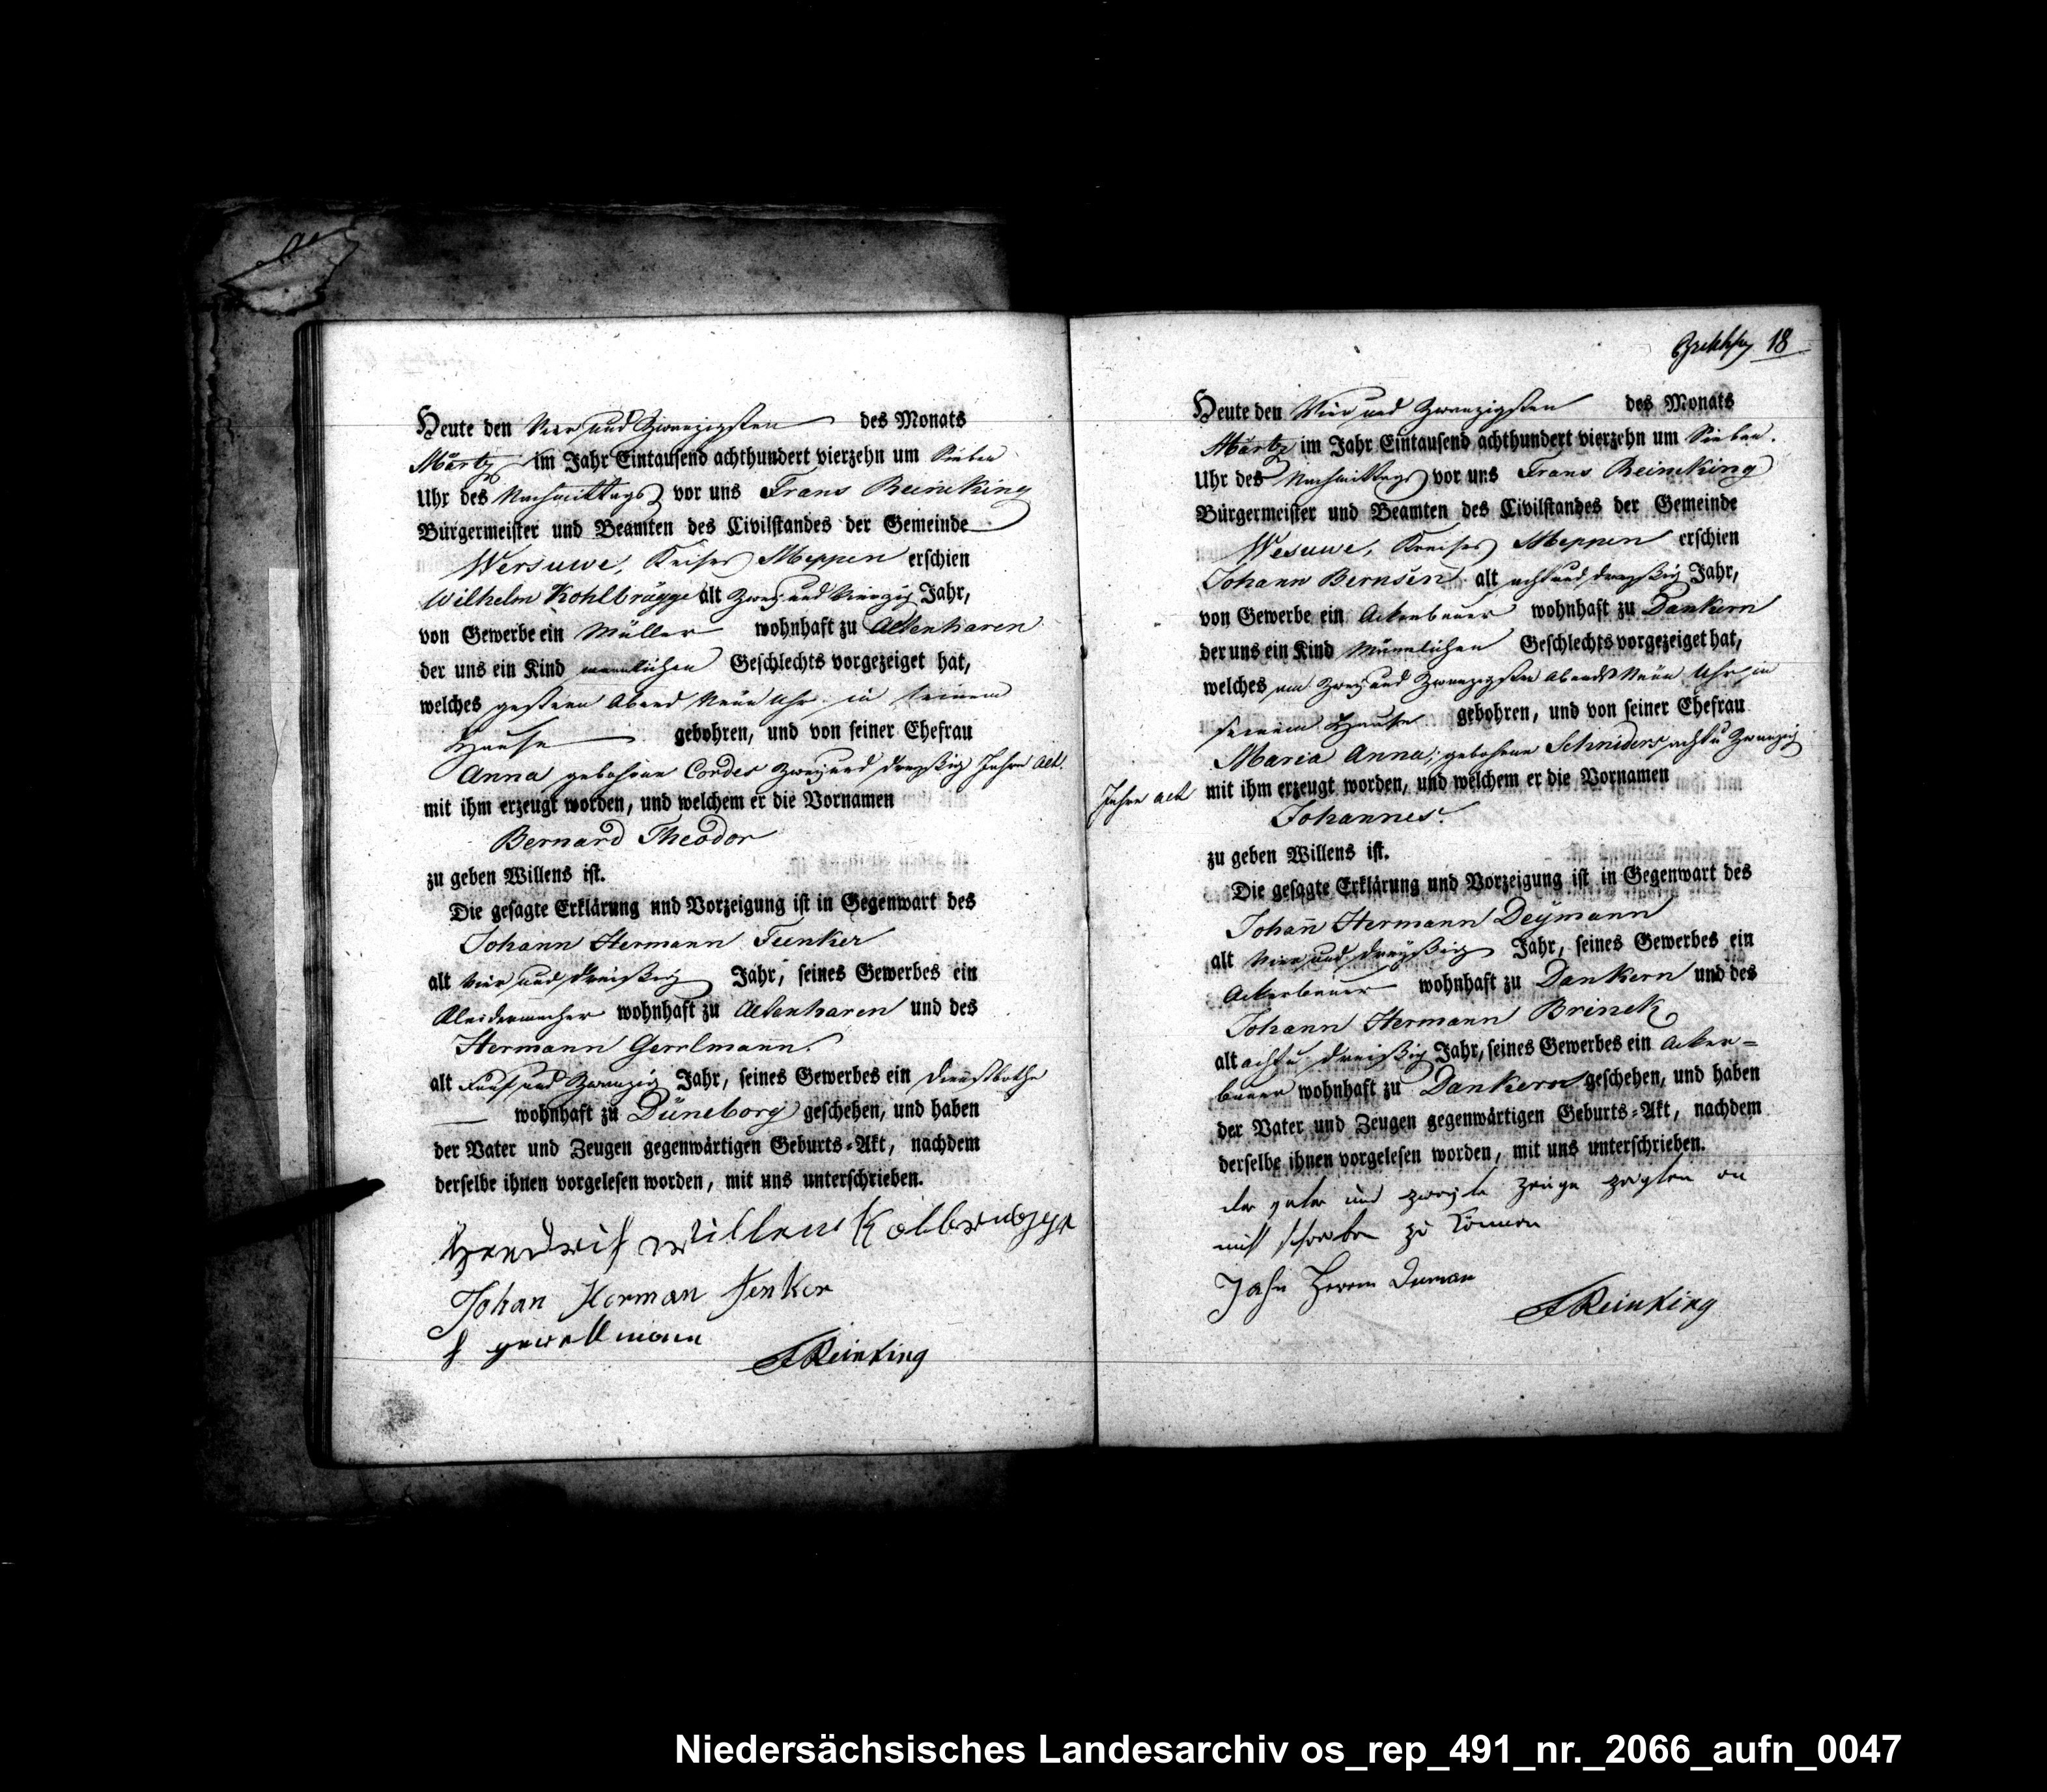 Heute den Vier und Zwanzigsten des Monats
Märtz im Jahr Eintausend achthundert vierzehn um Sieben
Uhr des Nachmittags vor uns Frans Reineking
Bürgermeister und Beamten des Civilstandes der Gemeinde
Wersuwe, Kreises Meppen erschien
Wilhelm Kohlbrügge alt Zwey und Vierzig Jahr,
von Gewerbe ein Müller wohnhaft zu Altenharen
der uns ein Kind männlichen Geschlechts vorgezeiget hat,
welches gestern Abend Neun Uhr in seinem
Hause gebohren, und von seiner Ehefrau
Anna gebohrne Cordes Zwey und dreyßig Jahre Alt.
mit ihm erzeugt worden, und welchem er die Vornamen
Bernard Theodor
zu geben Willens ist.
Die gesagte Erklärung und Vorzeigung ist in Gegenwart des
Johann Hermann Feenker
alt Vier und dreißig Jahr, seines Gewerbes ein
Kleidermacher wohnhaft zu Altenharen und des
Hermann
alt Fünf und Zwanzig Jahr, seines Gewerbes ein Dienstbothe
wohnhaft zu Düneborg geschehen, und haben
der Vater und Zeugen gegenwärtigen Geburts-Akt, nachdem
derselbe ihnen vorgelesen worden, mit uns unterschrieben.
Johan Herman Fenker
FReinking
18
Heute den Vier und Zwanzigsten des Monats
Märtz im Jahr Eintausend achthundert vierzehn um Sieben.
Uhr des Nachmittags vor uns Frans Reineking
Bürgermeister und Beamten des Civilstandes der Gemeinde
Wesuwe, Kreises Meppen erschien
Johann Bernsen alt acht und dreyßig Jahr,
von Gewerbe ein Ackerbauer wohnhaft zu Dankern
der uns ein Kind Männlichen Geschlechts vorgezeiget hat,
welches am Zwey und Zwanzigsten Abends Neün Uhr in
seinem Hause gebohren, und von seiner Ehefrau
Maria Anna, gebohrne Schniders acht u Zwanzig
Jahre alt mit ihm erzeugt worden, und welchem er die Vornamen
Johannes.
zu geben Willens ist.
Die gesagte Erklärung und Vorzeigung ist in Gegenwart des
Johan̄ Hermann Deymann
alt Vier und dreyßig Jahr, seines Gewerbes ein
Ackerbauer wohnhaft zu Dankern und des
Johann Hermann Brinck
alt acht u dreißig Jahr, seines Gewerbes ein Acker=
bauer wohnhaft zu Dankern geschehen, und haben
der Vater und Zeugen gegenwärtigen Geburts-Akt, nachdem
derselbe ihnen vorgelesen worden, mit uns unterschrieben.
der vater und zweyte Zeuge zeigten an
nicht schreiben zu können
FReinking
Niedersächsisches Landesarchiv os_rep_491_nr._2066_aufn_0047